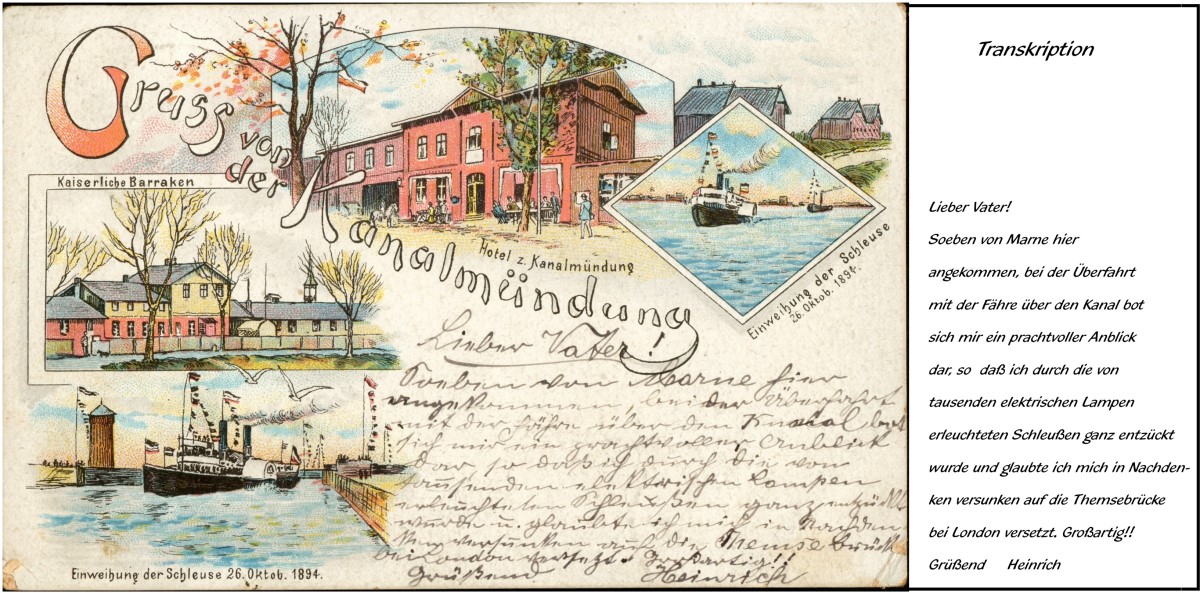 Gruss
von
der
Kanalmündung
Kaiserliche Barraken
Hotel z. Kanalmündung
Einweihung der Schleuse
26. Oktob. 1894.
Einweihung der Schleuse 26. Oktob. 1894.
Lieber Vater!
Soeben von Marne hier
angekommen, bei der Überfahrt
mit der Fähre über den Kanal bot
sich mir ein prachtvoller Anblick
dar, so daß ich durch die von
tausenden elektrischen Lampen
erleuchteten Schleußen ganz entzückt
wurde u. glaubte ich mich in Nachden
ken versunken auf die Themsebrücke
bei London versetzt. Großartig!!
Grüßend Heinrich
Transkription
Lieber Vater!
Soeben von Marne hier
angekommen, bei der Überfahrt
mit der Fähre über den Kanal bot
sich mir ein prachtvoller Anblick
dar, so daß ich durch die von
tausenden elektrischen Lampen
erleuchteten Schleußen ganz entzückt
wurde und glaubte ich mich in Nachden-
ken versunken auf die Themsebrücke
bei London versetzt. Großartig!!
Grüßend Heinrich